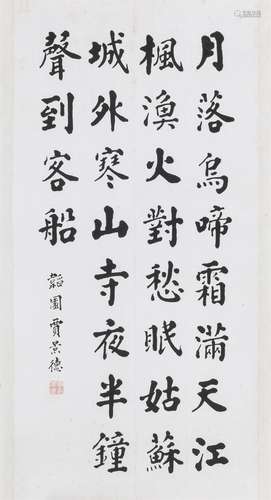 月落烏啼霜滿天江
楓漁火對愁眠姑蘇
城外寒山寺夜半鐘
聲到客船
韜園賈景德